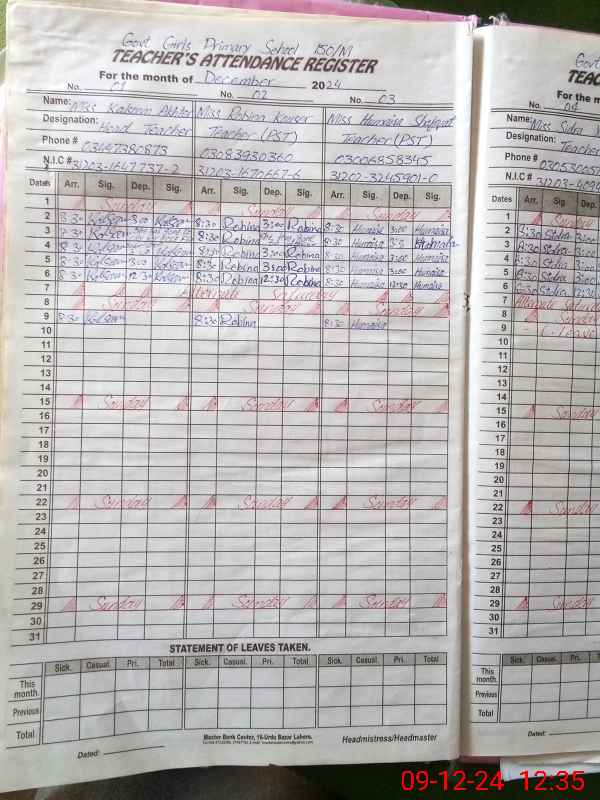 Govt Girls Primary School 150/M
TEACHER'S ATTENDANCE REGISTER
For the month of December 2024
No. 01 No. 02 No. 03
Name: Miss Kalsoom Akhter Miss Robina Kouser Miss Humaira Shafqat
Designation: Head Teacher Teacher (PST) Teacher (PST)
Phone # 03083930360 03006858345
N.I.C # 31203-1647737-2 31203-1670667-6 31202-3245901-0
Dates Arr. Sig. Dep. Sig. Arr. Sig. Dep. Sig. Arr. Sig. Dep. Sig.
1 Sunday Sunday Sunday
2 8:30 Kalsoom 3:00 Kalsoom 8:30 Robina 3:00 Robina 8:30 Humaira 3:00 Humaira
3 8:30 Kalsoom 8:30 Robina 8:30 Humaira
4 8:30 Robina 3:00 Robina 8:30 Humaira 3:00 Humaira
5 8:30 Kalsoom 3:00 Kalsoom 8:30 Robina 3:00 Robina 8:30 Humaira 3:00 Humaira
6 8:30 Kalsoom 12:30 Kalsoom 8:30 Robina 12:30 Robina 8:30 Humaira 12:30 Humaira
7 Alternate Saturday
8 Sunday Sunday Sunday
9 8:30 Kalsoom 8:30 Robina 8:30 Humaira
10
11
12
13
14
15 Sunday Sunday Sunday
16
17
18
19
20
21
22 Sunday Sunday Sunday
23
24
25
26
27
28
29 Sunday Sunday Sunday
30
31
STATEMENT OF LEAVES TAKEN.
Sick. Casual. Pri. Total Sick. Casual. Pri. Total Sick. Casual. Pri. Total
This month.
Previous
Total
Master Book Center, 16-Urdu Bazar Lahore.
Headmistress/Headmaster
Dated:
Govt
TEAC
For the mo
No. 04
Name: Miss Sidra
Designation: Teacher
Phone #
N.I.C # 31203
Dates Arr. Sig. Dep.
1 Sunday
2 8:30
3 8:30
4 8:30
5 8:30
6 8:30
7 Alternate
8 Sunday
9 C-Leave
10
11
12
13
14
15 Sunday
16
17
18
19
20
21
22 Sunday
23
24
25
26
27
28
29 Sunday
30
31
Sick. Casual. Pri. To
This month.
Previous
Total
Dated:
09-12-24 12:35